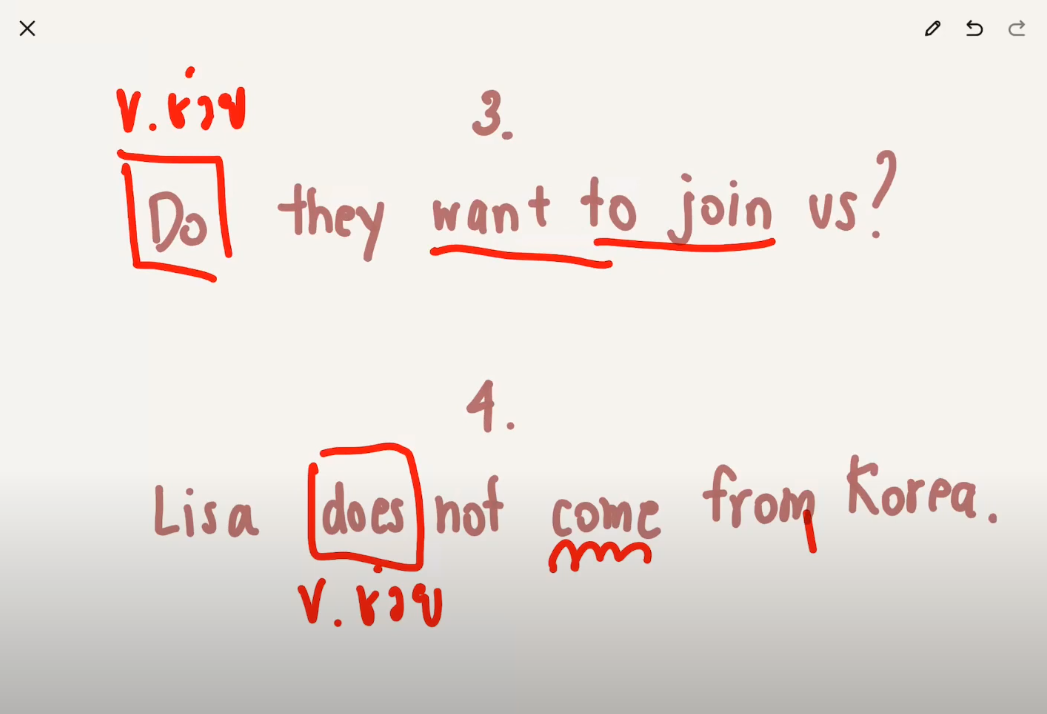 v. ช่วย
3.
Do they want to join us?
4.
Lisa does not come from Korea.
v. ช่วย